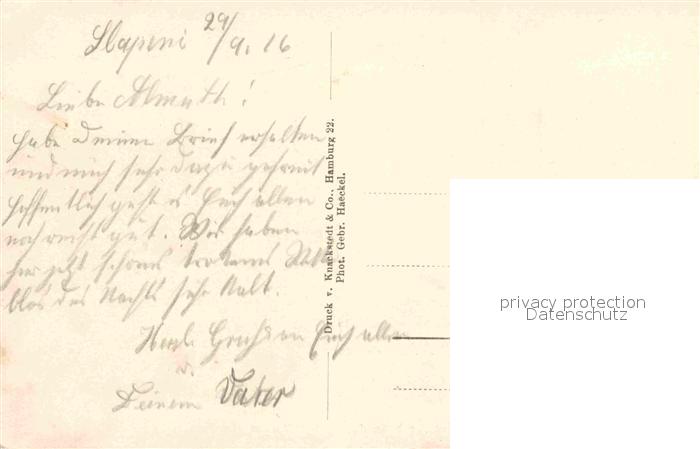 Slapeni 29/9. 16
Liebe Almuth!
habe Deinen Brief erhalten
und mich sehr dazu gefreut
hoffentlich geht es Euch allen
noch recht gut. Wir haben
hier jetzt schönes trockenes
blos des Nachts sehr kalt.
Herzl. Grüße an Euch allen
v.
Deinem Vater
Druck v. Knackstedt & Co., Hamburg 22.
Phot. Gebr. Haeckel.
privacy protection
Datenschutz